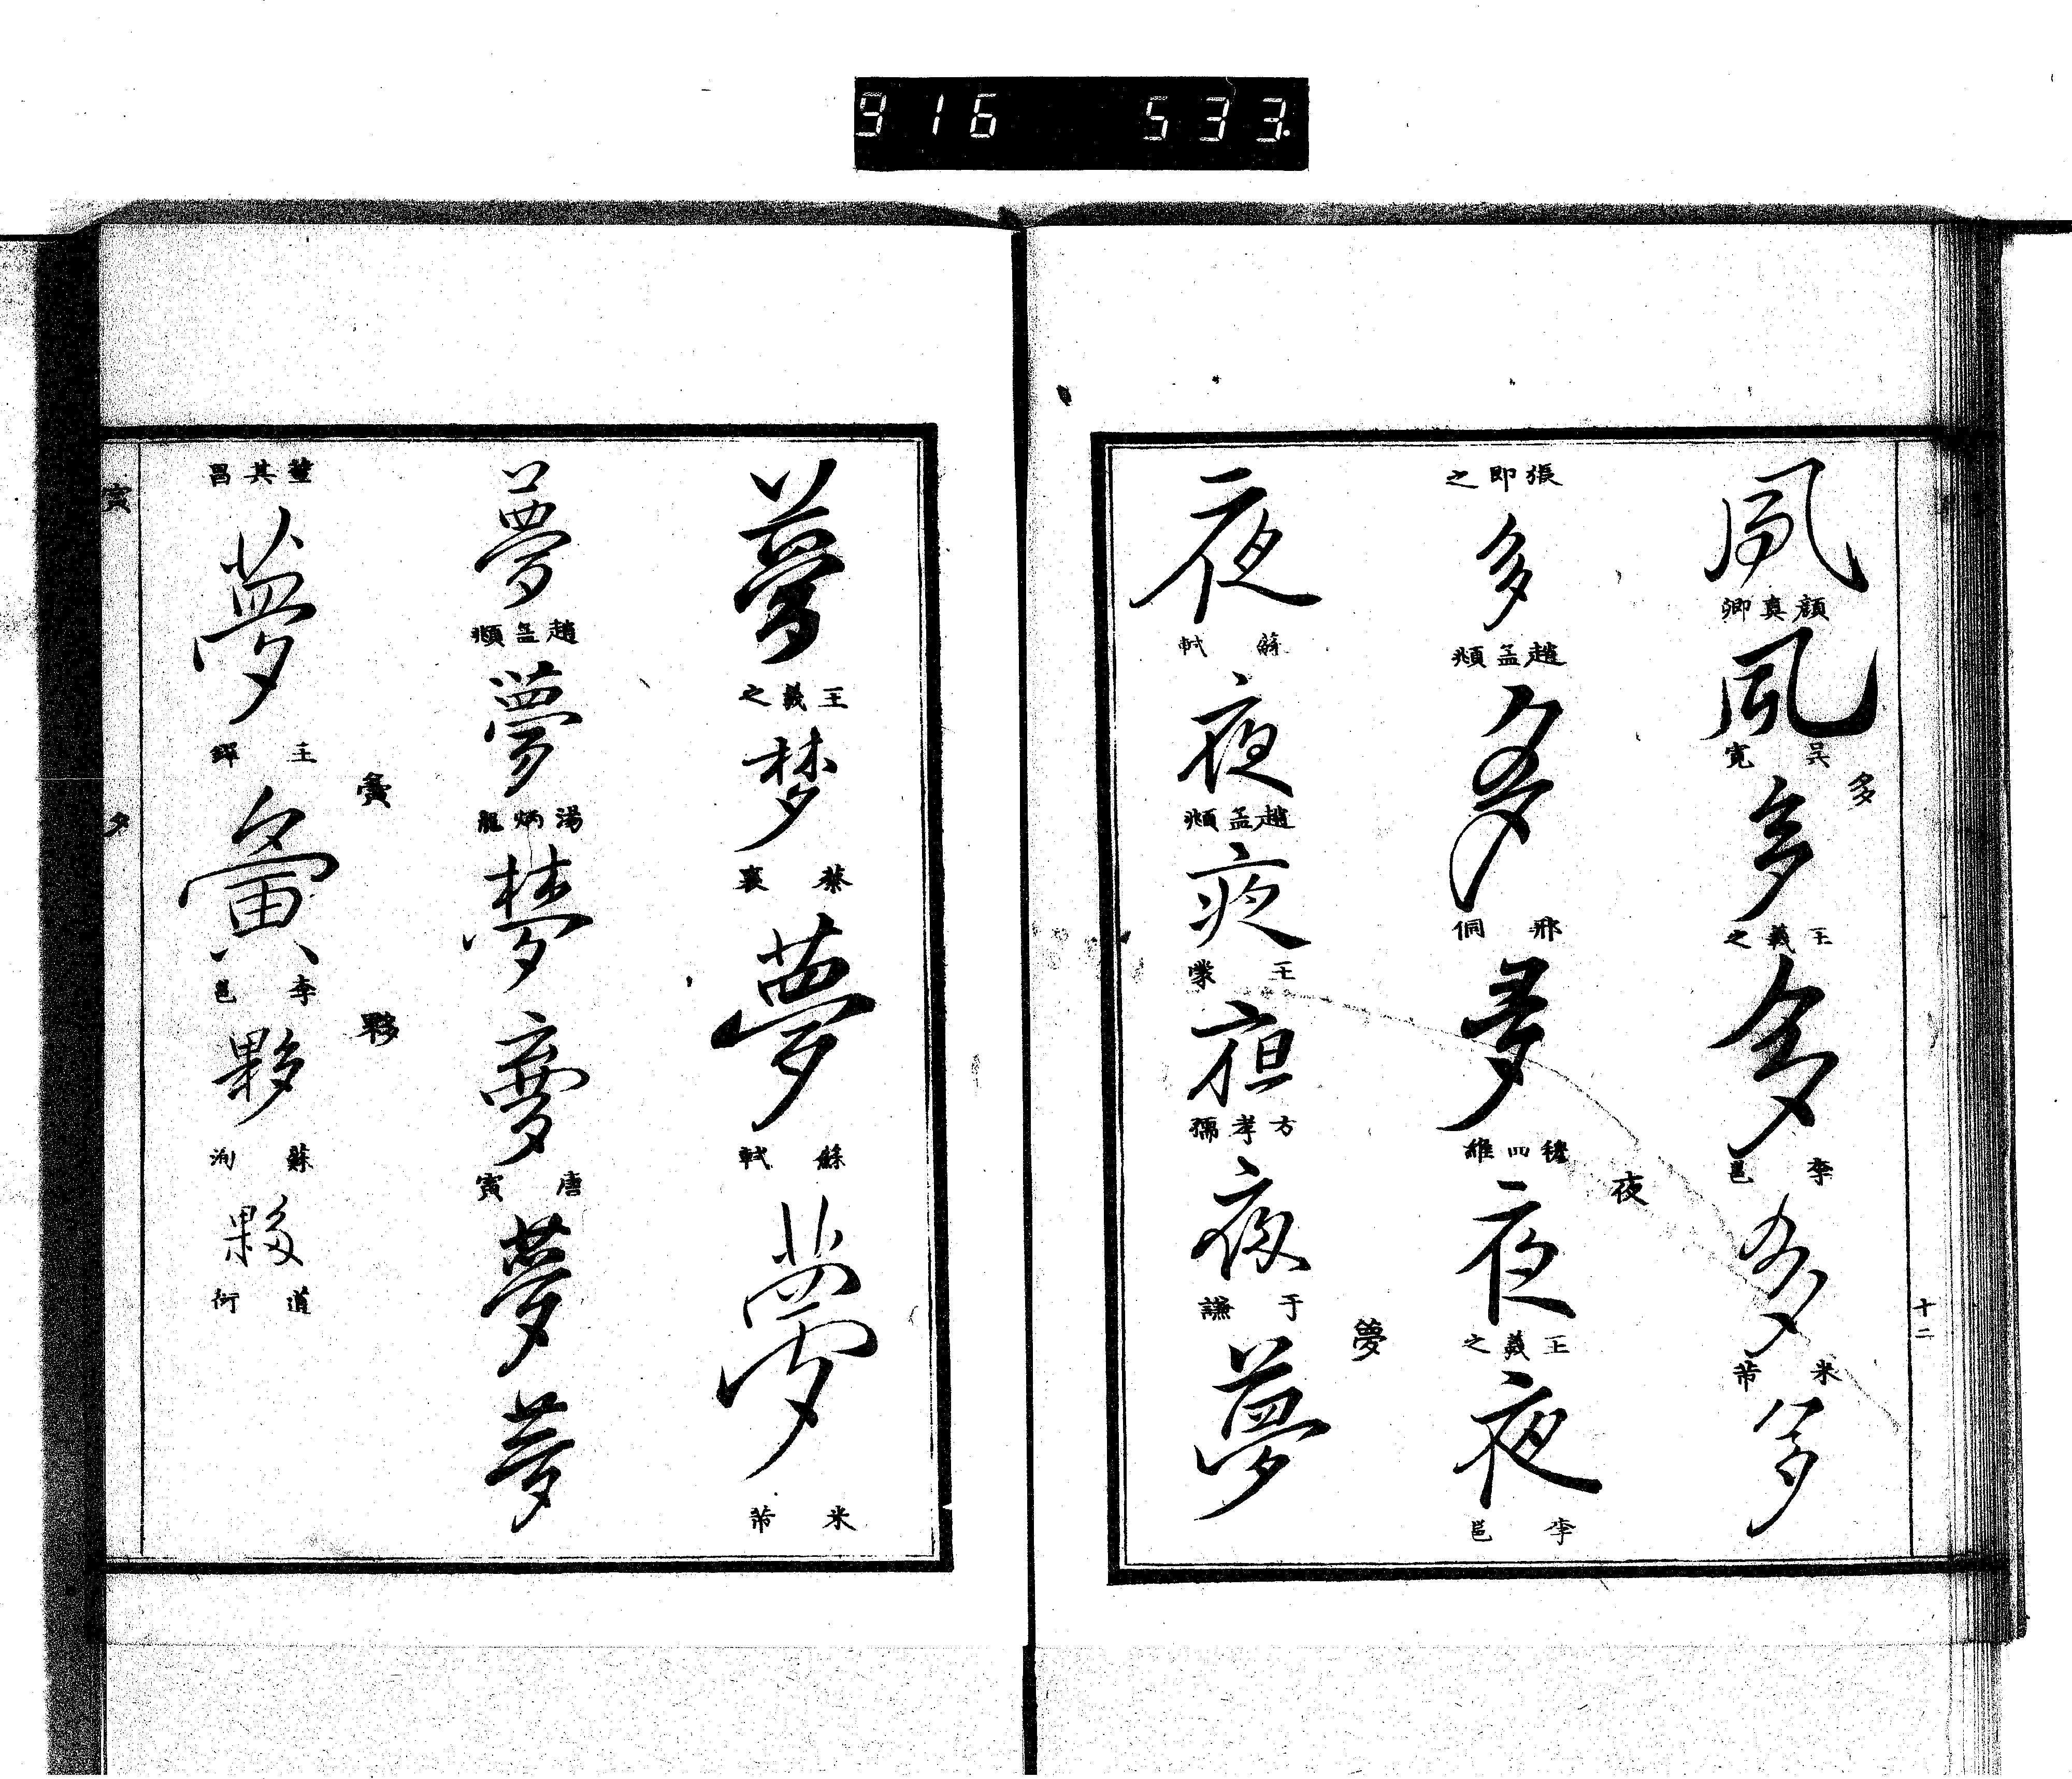 916 533.
夙
顔真卿
夙
呉寛
多
多
王羲之
多
李邕
多
米芾
多
張即之
多
趙孟頫
多
邢侗
多
穆四維
夜
夜
王羲之
夜
李邕
夜
蘇軾
夜
趙孟頫
夜
王蒙
夜
方孝孺
夜
于謙
夢
夢
十二
夢
王羲之
梦
蔡襄
夢
蘇軾
夢
米芾
夢
趙孟頫
夢
湯炳龍
夢
夢
唐寅
夢
夢
董其昌
夢
王鐸
夤
夤
李邕
夥
夥
蘇洵
夥
道衍
寅
夕